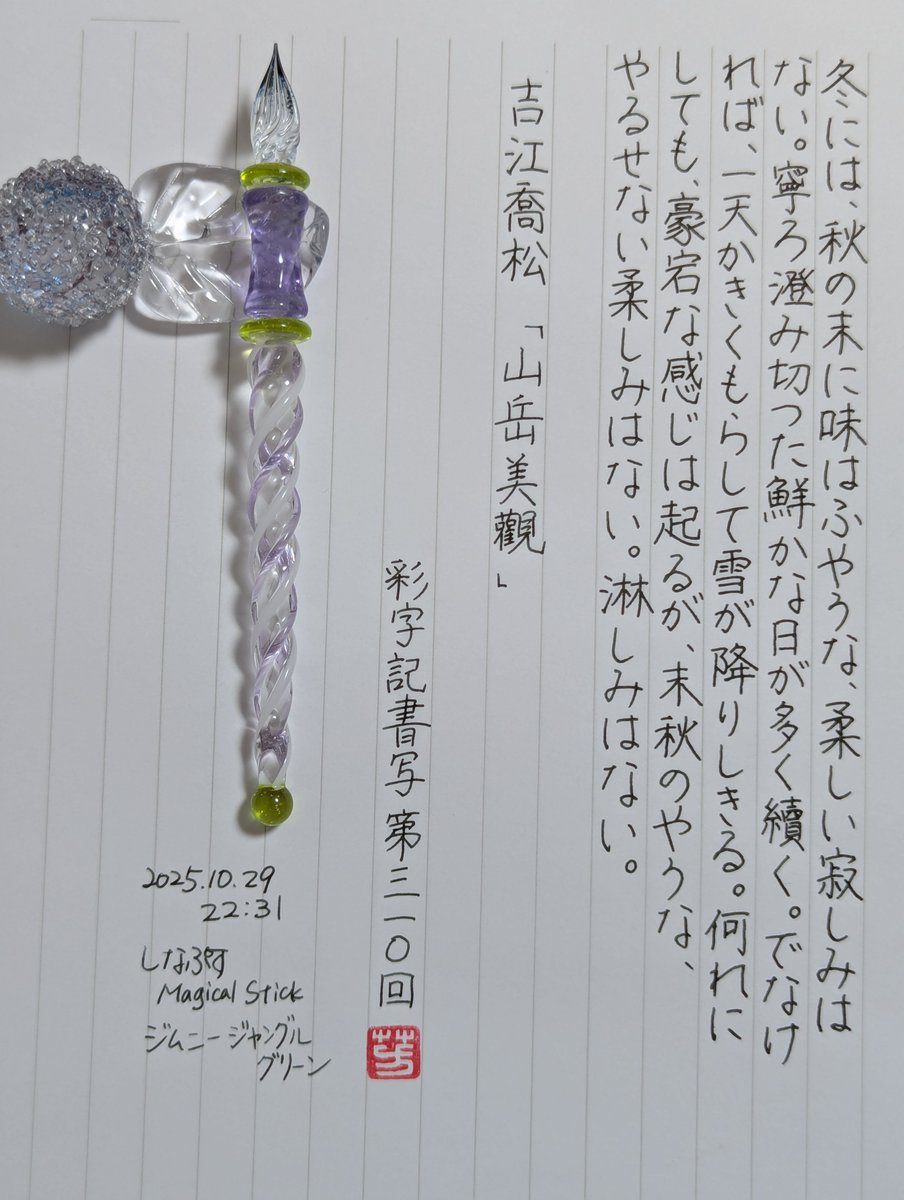 冬には、秋の末に味はふやうな、柔しい寂しみは
ない。寧ろ澄み切つた鮮かな日が多く續く。でなけ
れば、一天かきくもらして雪が降りしきる。何れに
しても、豪宕な感じは起るが、末秋のやうな、
やるせない柔しみはない。淋しみはない。
吉江喬松「山岳美觀」
彩字記書写 第三一〇回
芳
2025.10.29
22:31
しなぷす
Magical Stick
ジムニージャングル
グリーン